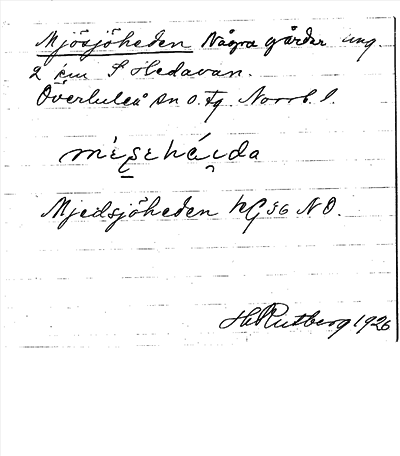 Mjösjöheden Några gårdar ung.
2 km S Hedavan.
Överluleå sn o. tg. Norrb. l.
mìsehái̯da
Mjeidsjöheden KG 56 NO.
H Rutberg 1926